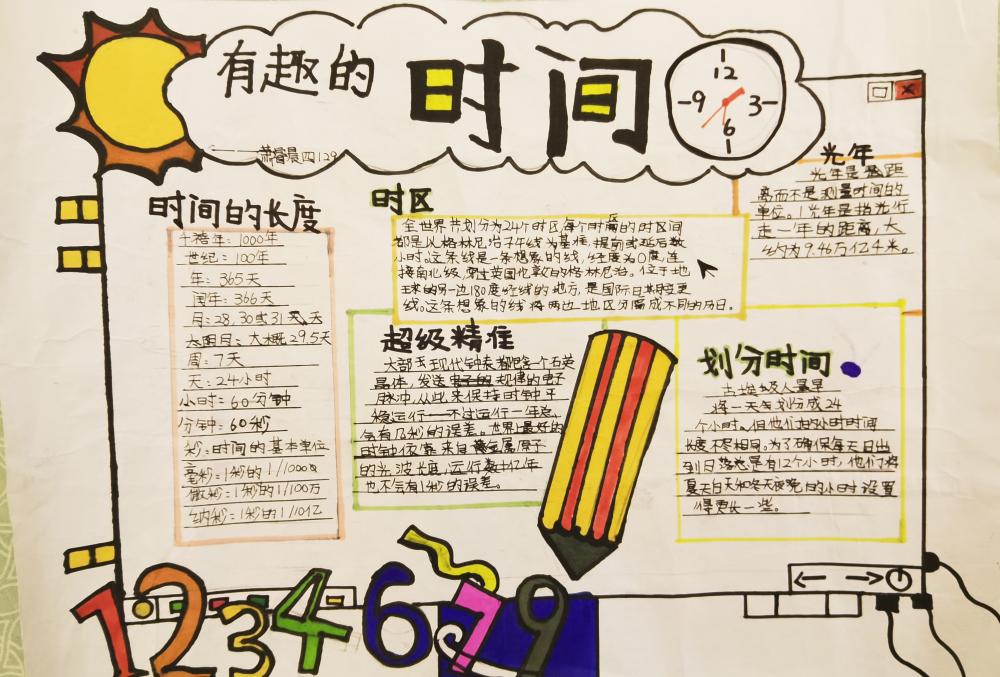 有趣的时间
12
9
3
6
萧睿晨四129
时间的长度
千禧年：1000年
世纪：100年
年：365天
闰年：366天
月：28，30或31天
太阴月：大概29.5天
周：7天
天：24小时
小时：60分钟
分钟：60秒
秒：时间的基本单位
毫秒：1秒的1/1000
微秒：1秒的1/100万
纳秒：1秒的1/10亿
时区
全世界共划分为24个时区每个时区的时区间
都是从格林尼治子午线为基准，提前或延后数
小时。这条线是一条想象的线，经度为0度，连
接南北极，穿过英国伦敦的格林尼治。位于地
球的另一边180度经线的地方，是国际日期变更
线。这条想象的线将两边地区分隔成不同的历日。
超级精准
大部分现代钟表都包含一个石英
晶体，发送规律的电子
脉冲，从此来保持时钟平
稳运行——不过运行一年总
会有几秒的误差。世界上最好的
时钟依靠来自金属原子
的光波长度，运行数十亿年
也不会有1秒的误差。
光年
光年是距
离而不是测量时间的
单位。1光年是指光行
走一年的距离，大
约为9.46万亿千米。
划分时间
古埃及人最早
将一天划分成24
个小时，但他们的小时时间
长度不尽相同。为了确保每天日出
到日落总是有12个小时，他们将
夏天白天和冬天夜晚的小时设置
得更长一些。
1 2 3 4 6 7 9